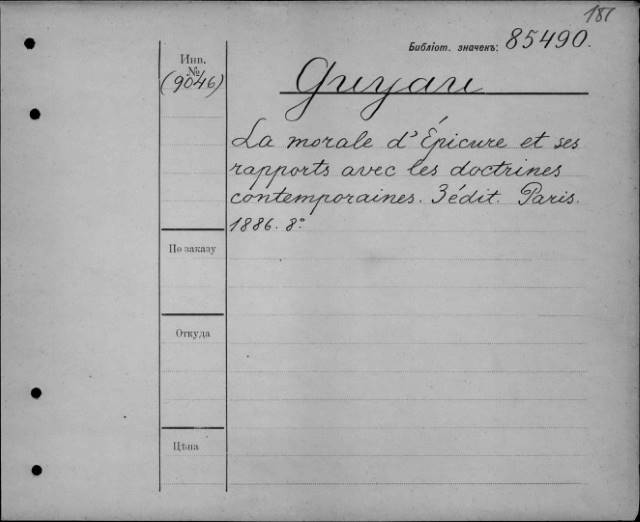 181
Библіот. значекъ: 85490.
Инв.
№
(9046)
Guyau
La morale d'Épicure et ses
rapports avec les doctrines
contemporaines. 3 édit. Paris.
1886. 8°
По заказу
Откуда
Цѣна